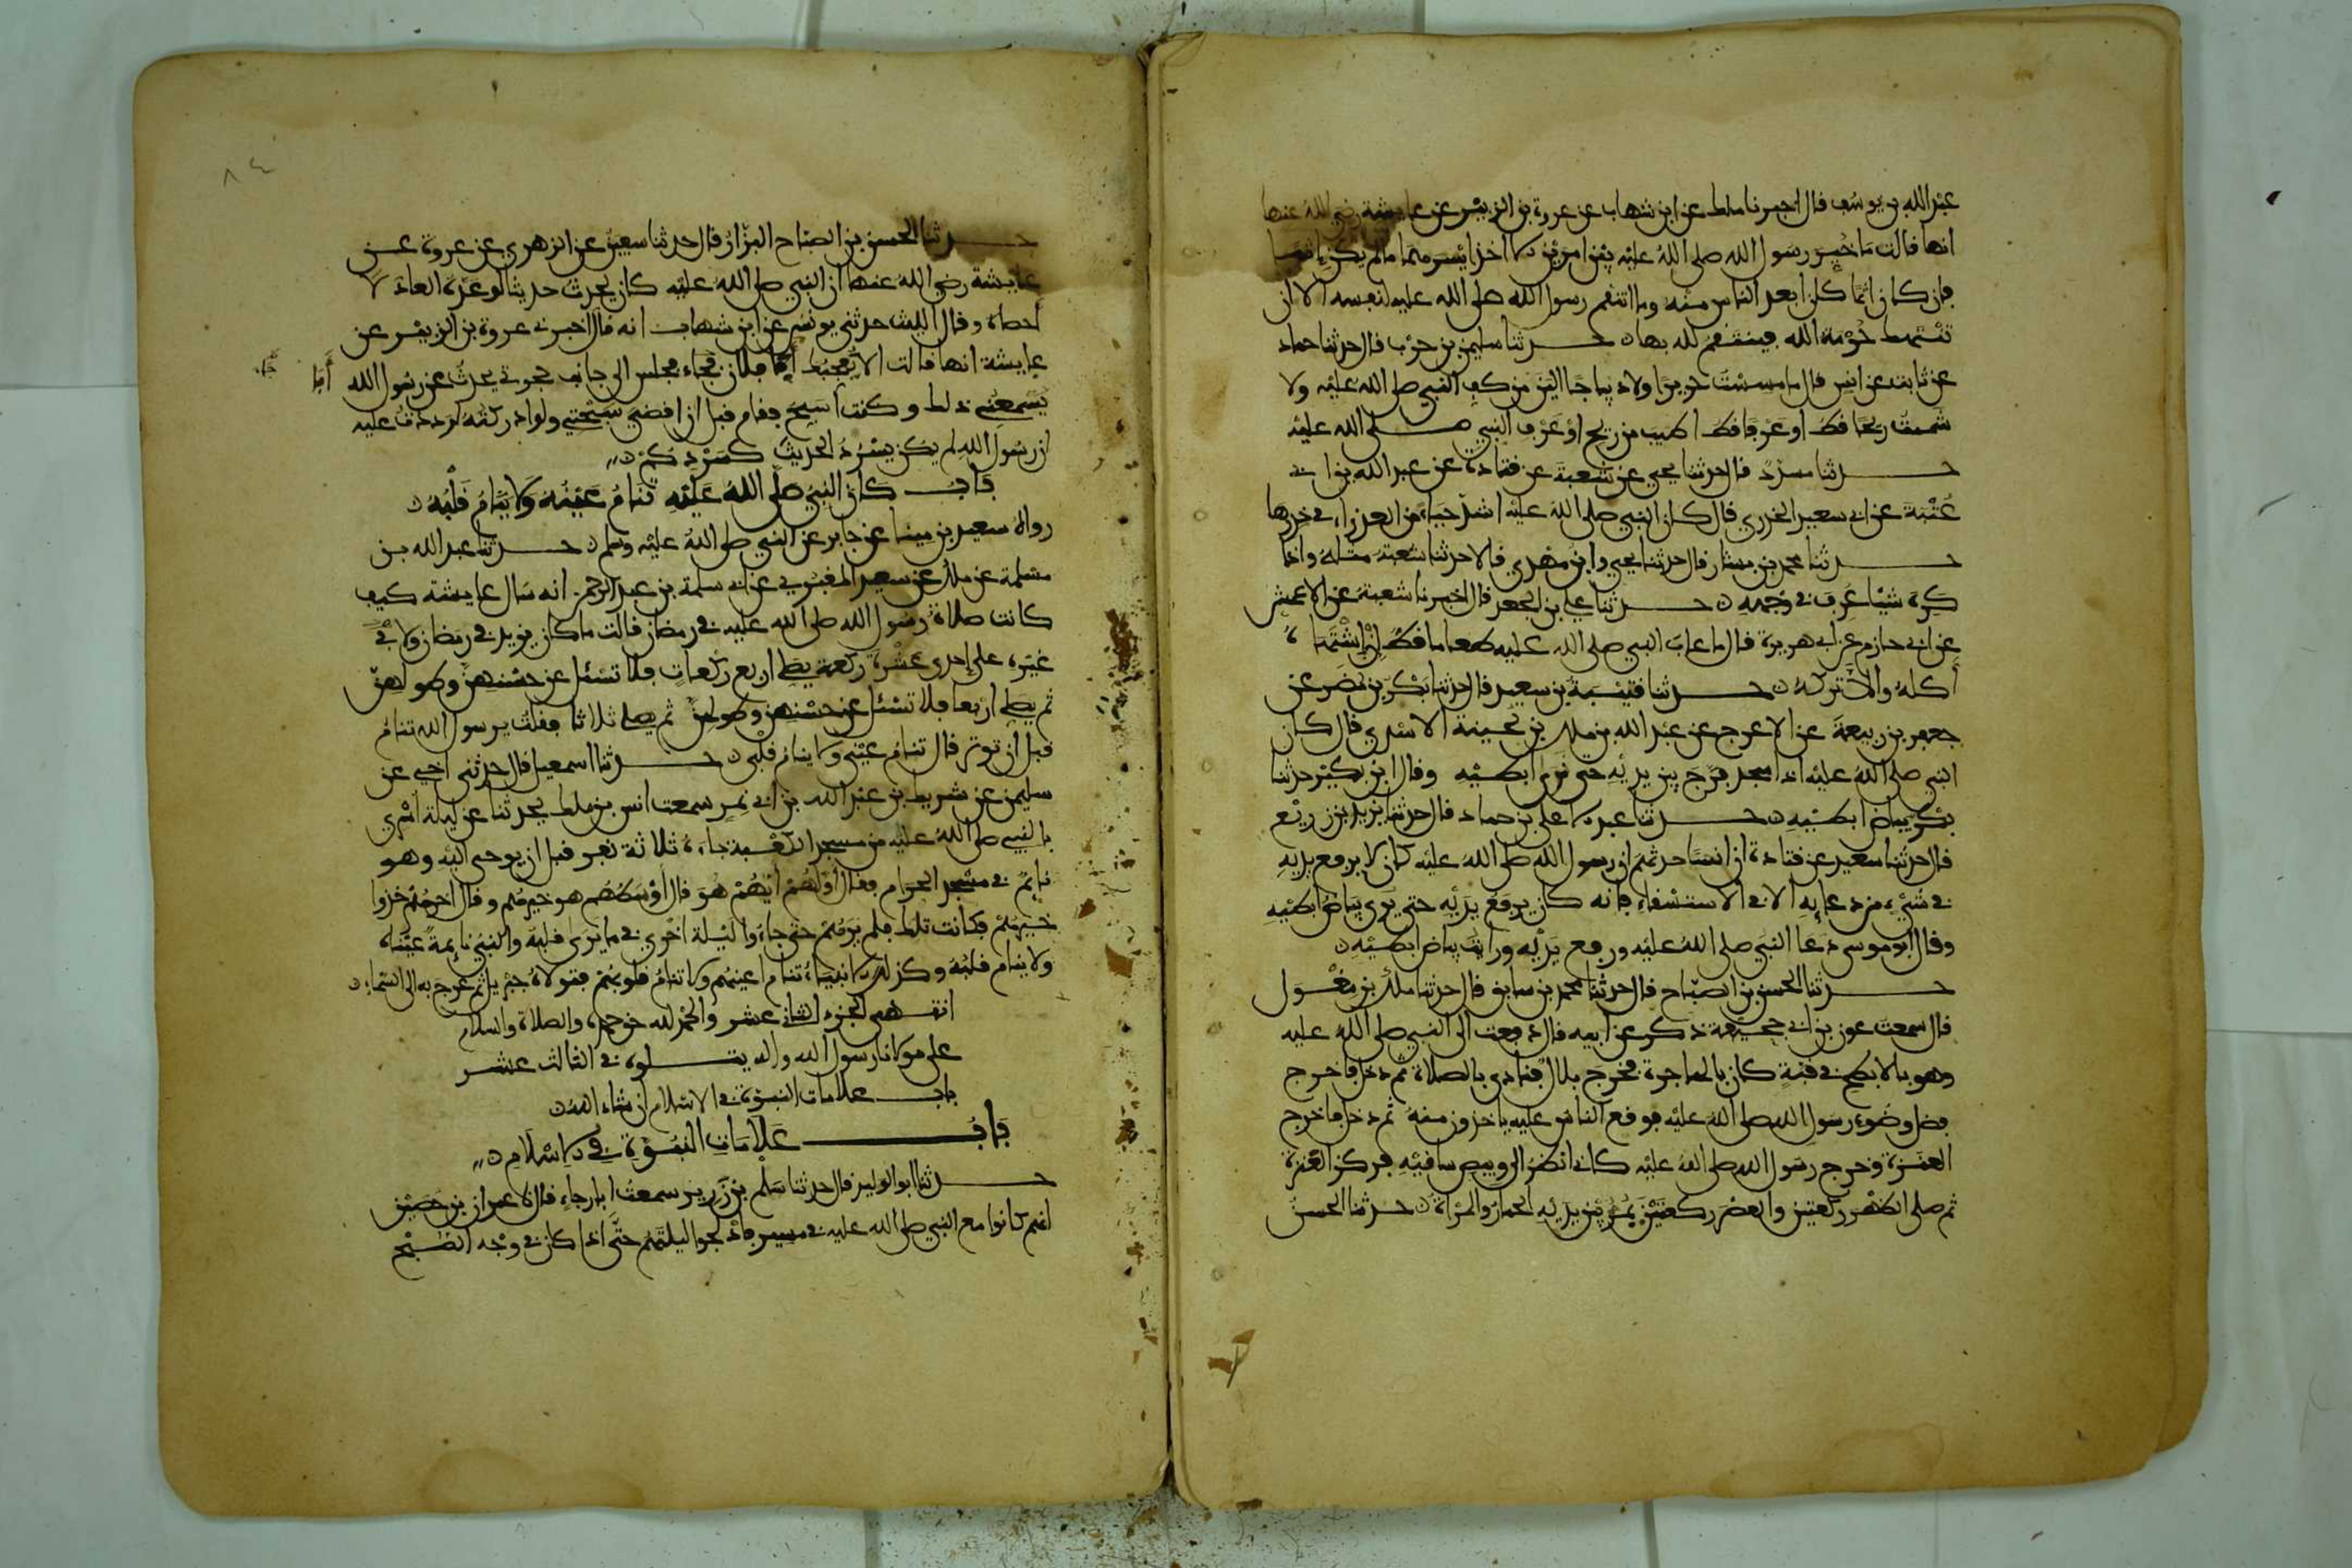 عبد الله بن يوسف قال اخبرنا ملك عن ابن شهاب عن عروة بن الزبير عن عايشة رضي الله عنها
انها قالت ما خير رسول الله صلى الله عليه بين امرين الا اخذ ايسرهما ما لم يكن اثما
فان كان اثما كان ابعد الناس منه وما انتقم رسول الله صلى الله عليه لنفسه الا ان
تنتهك حرمة الله فينتقم لله بها حدثنا سليمن بن حرب قال حدثنا حماد
عن ثابت عن انس قال ما مسست حريرا ولا ديباجا الين من كف النبي صلى الله عليه ولا
شممت ريحا قط او عرقا قط اطيب من ريح او عرف النبي صلى الله عليه
حدثنا مسدد قال حدثنا يحيى عن شعبة عن قتادة عن عبد الله بن ابي
عتبة عن ابي سعيد الخدري قال كان النبي صلى الله عليه اشد حياء من العذراء في خدرها
حدثنا محمد بن بشار قال حدثنا يحيى وابن مهدي قالا حدثنا شعبة مثله واذا
كره شيئا عرف في وجهه حدثنا علي بن الجعد قال اخبرنا شعبة عن الاعمش
عن ابي حازم عن ابي هريرة قال ما عاب النبي صلى الله عليه طعاما قط إن اشتهاه
أكله والا تركه حدثنا قتيبة بن سعيد قال حدثنا بكر بن مضر عن
جعفر بن ربيعة عن الاعرج عن عبد الله بن ملك بن بحينة الاسدي قال كان
النبي صلى الله عليه اذا سجد فرج بين يديه حتى نرى ابطيه وقال ابن بكير حدثنا
بكر بياض ابطيه حدثنا عبد الاعلى بن حماد قال حدثنا يزيد بن زريع
قال حدثنا سعيد عن قتادة ان انسا حدثهم ان رسول الله صلى الله عليه كان لا يرفع يديه
في شيء من دعائه الا في الاستسقاء فانه كان يرفع يديه حتى يرى بياض ابطيه
وقال ابو موسى دعا النبي صلى الله عليه ورفع يديه ورايت بياض ابطيه
حدثنا الحسن بن الصباح قال حدثنا محمد بن سابق قال حدثنا ملك بن مغول
قال سمعت عون بن ابي جحيفة ذكر عن ابيه قال دفعت الى النبي صلى الله عليه
وهو بالابطح في قبة كان بالهاجرة فخرج بلال فنادى بالصلاة ثم دخل فاخرج
فضل وضوء رسول الله صلى الله عليه فوقع الناس عليه ياخذون منه ثم دخل فاخرج
العنزة وخرج رسول الله صلى الله عليه كاني انظر الى وبيص ساقيه فركز العنزة
ثم صلى الظهر ركعتين والعصر ركعتين يمر بين يديه الحمار والمرأة حدثنا الحسن
٨٤
حدثنا الحسن بن الصباح البزار قال حدثنا سفين عن الزهري عن عروة عن
عايشة رضي الله عنها ان النبي صلى الله عليه كان يحدث حديثا لو عده العاد لا
احصاه وقال الليث حدثني يونس عن ابن شهاب انه قال اخبرني عروة بن الزبير عن
عايشة انها قالت الا يعجبك أبا فلان جاء فجلس الى جانب حجرتي يحدث عن رسول الله
أبا
يسمعني ذلك وكنت اسبح فقام قبل ان اقضي سبحتي ولو ادركته لرددت عليه
ان رسول الله لم يكن يسرد الحديث كسردكم
باب كان النبي صلى الله عليه تنام عينه ولا ينام قلبه
رواه سعيد بن مينا عن جابر عن النبي صلى الله عليه وسلم حدثنا عبد الله بن
مسلمة عن ملك عن سعيد المقبري عن ابي سلمة بن عبد الرحمن انه سال عايشة كيف
كانت صلاة رسول الله صلى الله عليه في رمضان قالت ما كان يزيد في رمضان ولا في
غيره على احدى عشرة ركعة يصلي اربع ركعات فلا تسئل عن حسنهن وطولهن
ثم يصلي اربعا فلا تسئل عن حسنهن وطولهن ثم يصلي ثلاثا فقلت يرسول الله تنام
قبل ان توتر قال تنام عيني ولا ينام قلبي حدثنا اسمعيل قال حدثني اخي عن
سليمن عن شريك بن عبد الله بن ابي نمر سمعت انس بن ملك يحدثنا عن ليلة اسري
بالنبي صلى الله عليه من مسجد الكعبة جاءه ثلاثة نفر قبل ان يوحى اليه وهو
نايم في مسجد الحرام فقال اولهم ايهم هو قال اوسطهم هو خيرهم وقال اخرهم خذوا
خيرهم فكانت تلك فلم يرهم حتى جاءوا ليلة اخرى فيما يرى قلبه والنبي نايمة عيناه
ولا ينام قلبه وكذلك الانبياء تنام اعينهم ولا تنام قلوبهم فتولاه جبريل ثم عرج به الى السماء
انتهى الجزء الثاني عشر والحمد لله حق حمده والصلاة والسلام
على مولانا رسول الله واله يتلوه في الثالث عشر
باب علامات النبوة في الاسلام ان شاء الله
باب علامات النبوة في الاسلام
حدثنا ابو الوليد قال حدثنا سلم بن زرير سمعت ابا رجاء قال نا عمران بن حصين
انهم كانوا مع النبي صلى الله عليه في مسير فادلجوا ليلتهم حتى اذا كان في وجه الصبح